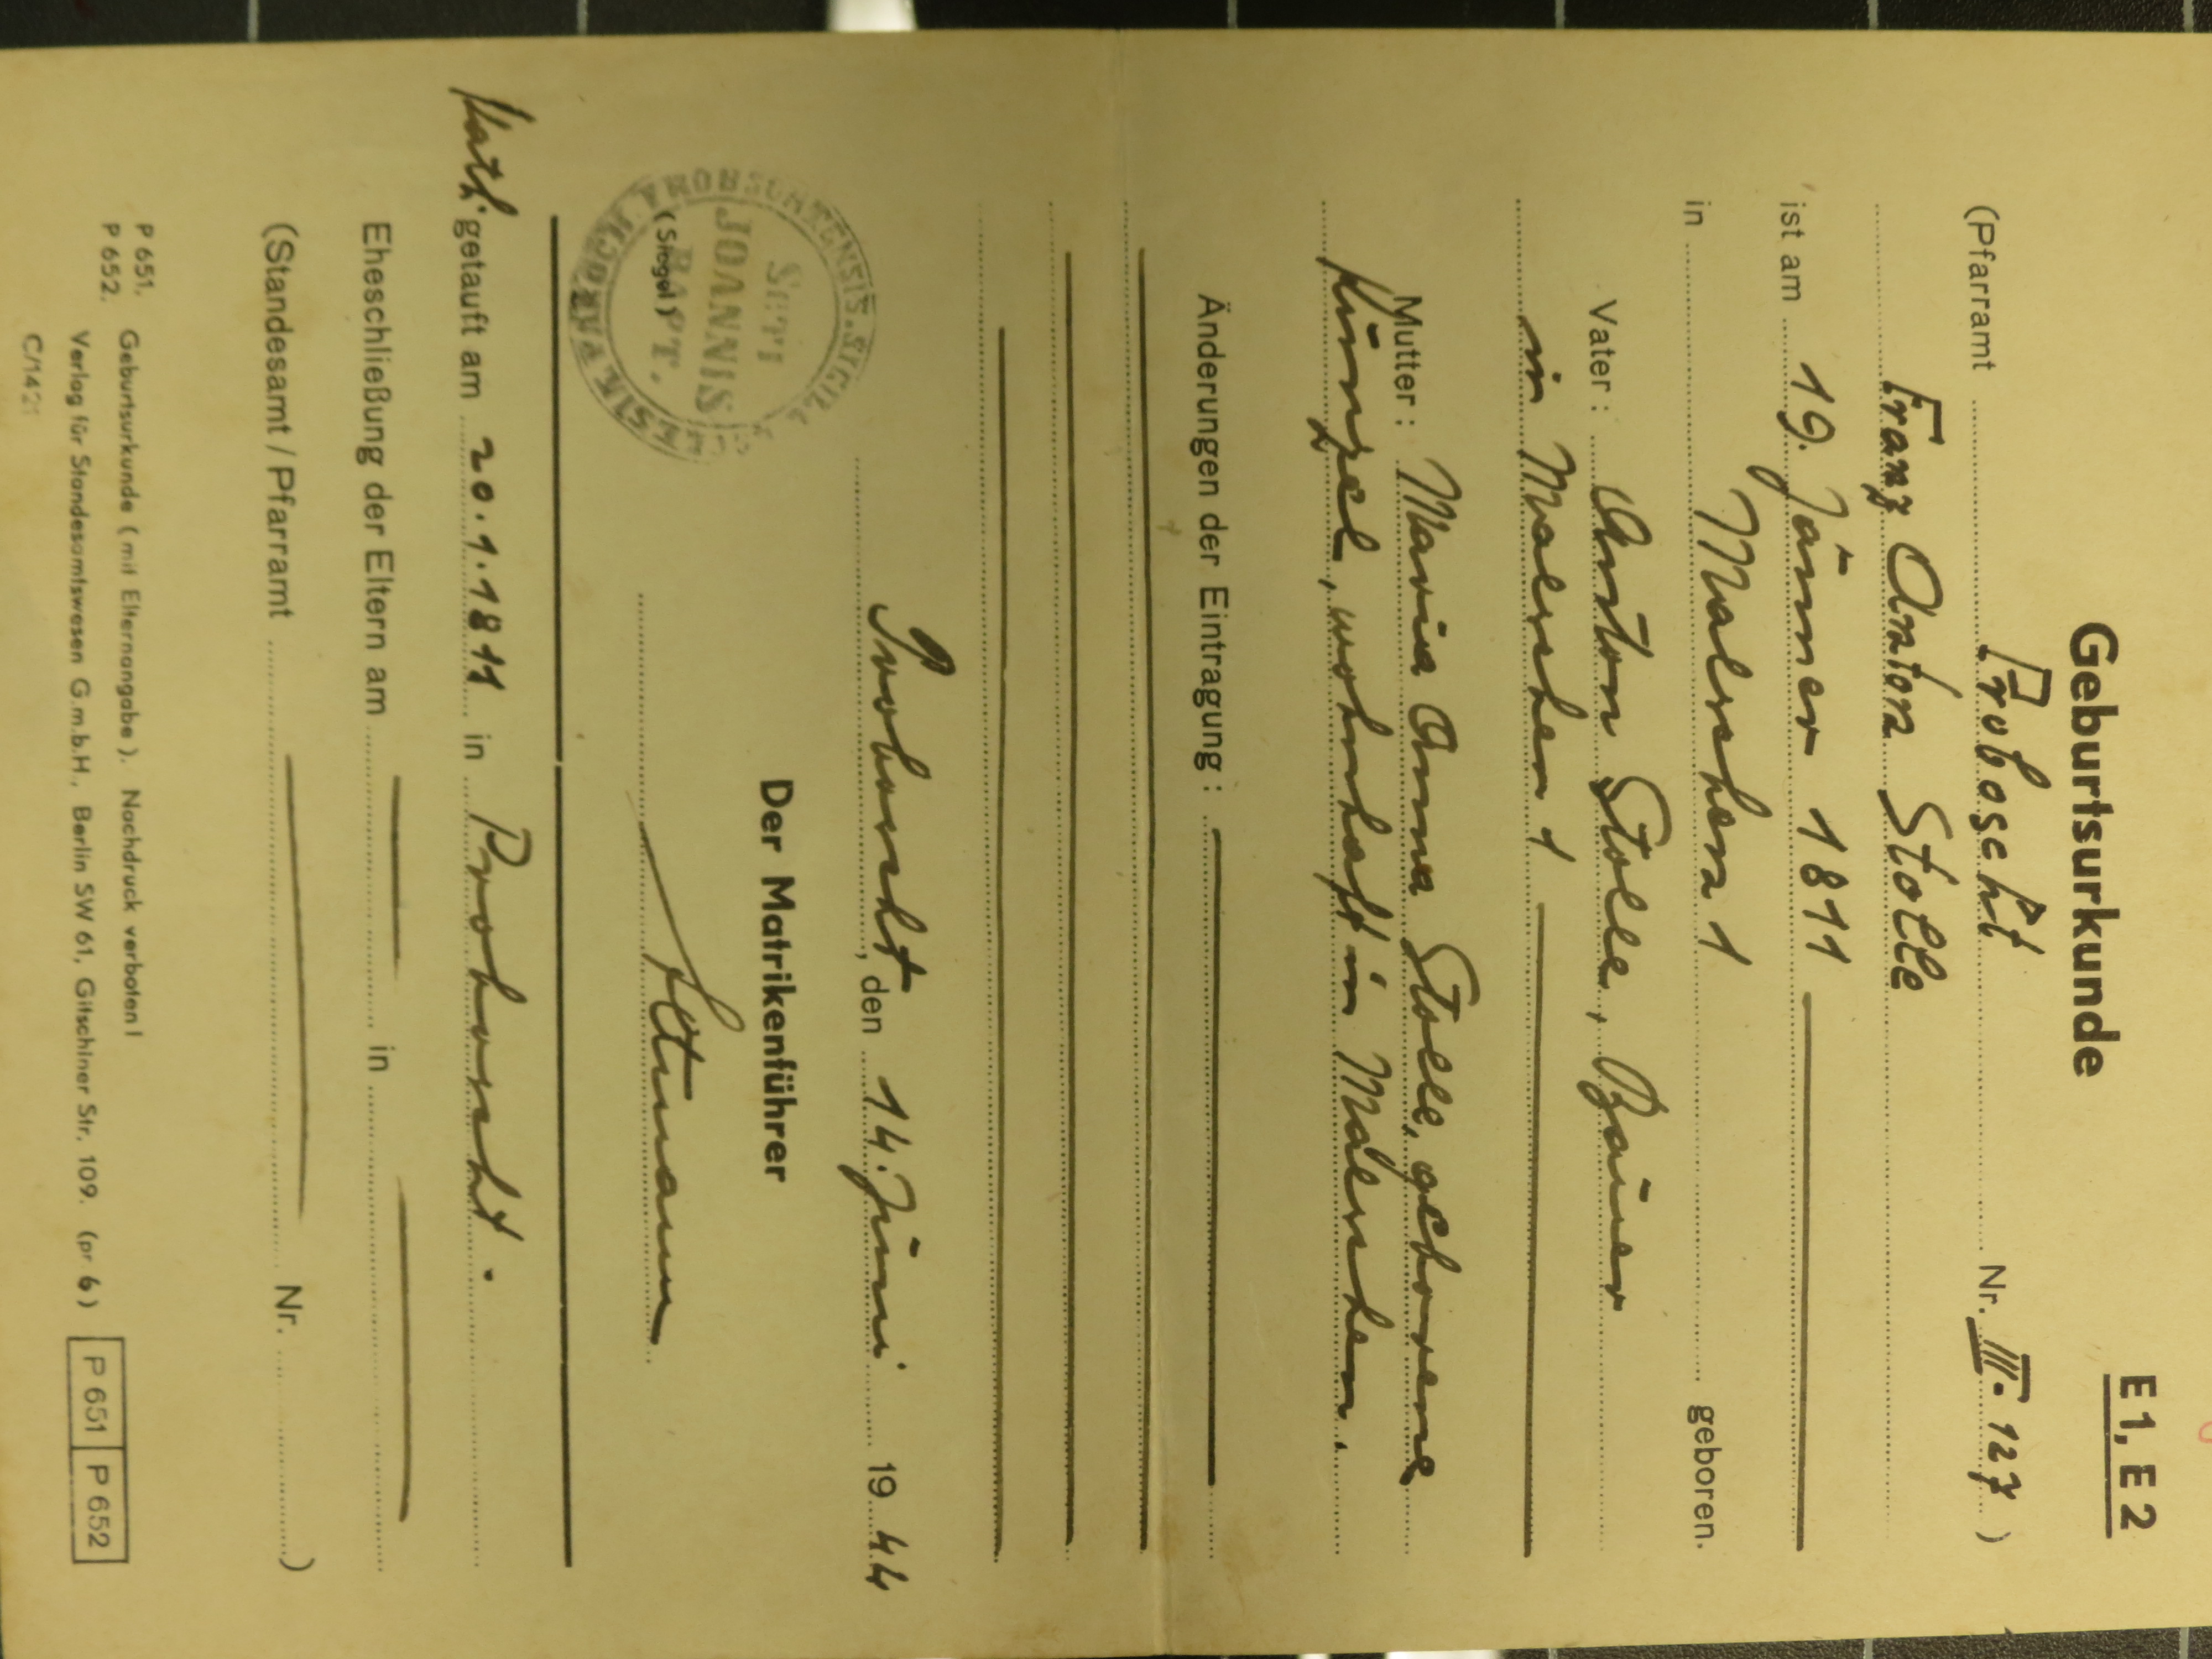 E 1, E 2
Geburtsurkunde
(Pfarramt Proboscht Nr. III- 127 )
Franz Anton Stolle
ist am 19. Jänner 1811
in Malschen 1 geboren.
Vater : Anton Stolle, Bauer
in Malschen 1
Mutter : Maria Anna Stolle, geborene
Künzel, wohnhaft in Malschen.
Änderungen der Eintragung :
Proboscht, den 14. Juni 1944
Der Matrikenführer
SCTI
JOANNIS
BAPT.
(Siegel)
Altmann
Kath. getauft am 20.1.1811 in Proboscht.
Eheschließung der Eltern am in
(Standesamt / Pfarramt Nr. )
P 651.
P 652.
Geburtsurkunde ( mit Elternangabe ). Nachdruck verboten !
Verlag für Standesamtswesen G.m.b.H., Berlin SW 61, Gitschiner Str. 109. (pr 6 )
P 651 P 652
C/1421